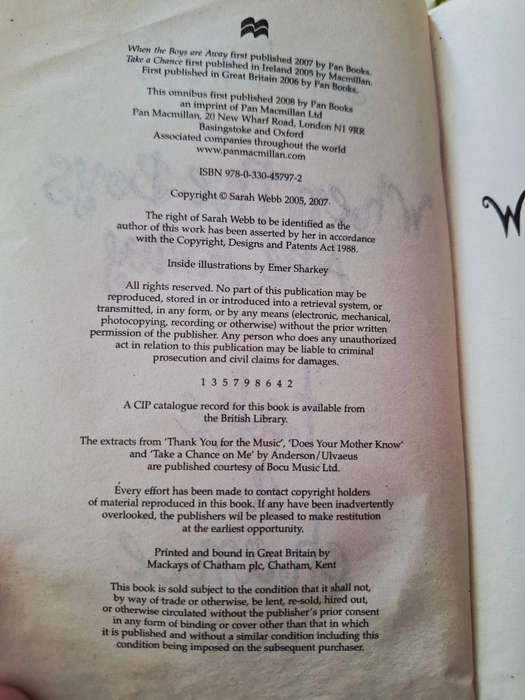 When the Boys are Away first published 2007 by Pan Books.
Take a Chance first published in Ireland 2005 by Macmillan.
First published in Great Britain 2006 by Pan Books.
This omnibus first published 2008 by Pan Books
an imprint of Pan Macmillan Ltd
Pan Macmillan, 20 New Wharf Road, London N1 9RR
Basingstoke and Oxford
Associated companies throughout the world
www.panmacmillan.com
ISBN 978-0-330-45797-2
Copyright © Sarah Webb 2005, 2007.
The right of Sarah Webb to be identified as the
author of this work has been asserted by her in accordance
with the Copyright, Designs and Patents Act 1988.
Inside illustrations by Emer Sharkey
All rights reserved. No part of this publication may be
reproduced, stored in or introduced into a retrieval system, or
transmitted, in any form, or by any means (electronic, mechanical,
photocopying, recording or otherwise) without the prior written
permission of the publisher. Any person who does any unauthorized
act in relation to this publication may be liable to criminal
prosecution and civil claims for damages.
1 3 5 7 9 8 6 4 2
A CIP catalogue record for this book is available from
the British Library.
The extracts from 'Thank You for the Music', 'Does Your Mother Know'
and 'Take a Chance on Me' by Anderson/Ulvaeus
are published courtesy of Bocu Music Ltd.
Every effort has been made to contact copyright holders
of material reproduced in this book. If any have been inadvertently
overlooked, the publishers wil be pleased to make restitution
at the earliest opportunity.
Printed and bound in Great Britain by
Mackays of Chatham plc, Chatham, Kent
This book is sold subject to the condition that it shall not,
by way of trade or otherwise, be lent, re-sold, hired out,
or otherwise circulated without the publisher's prior consent
in any form of binding or cover other than that in which
it is published and without a similar condition including this
condition being imposed on the subsequent purchaser.
W